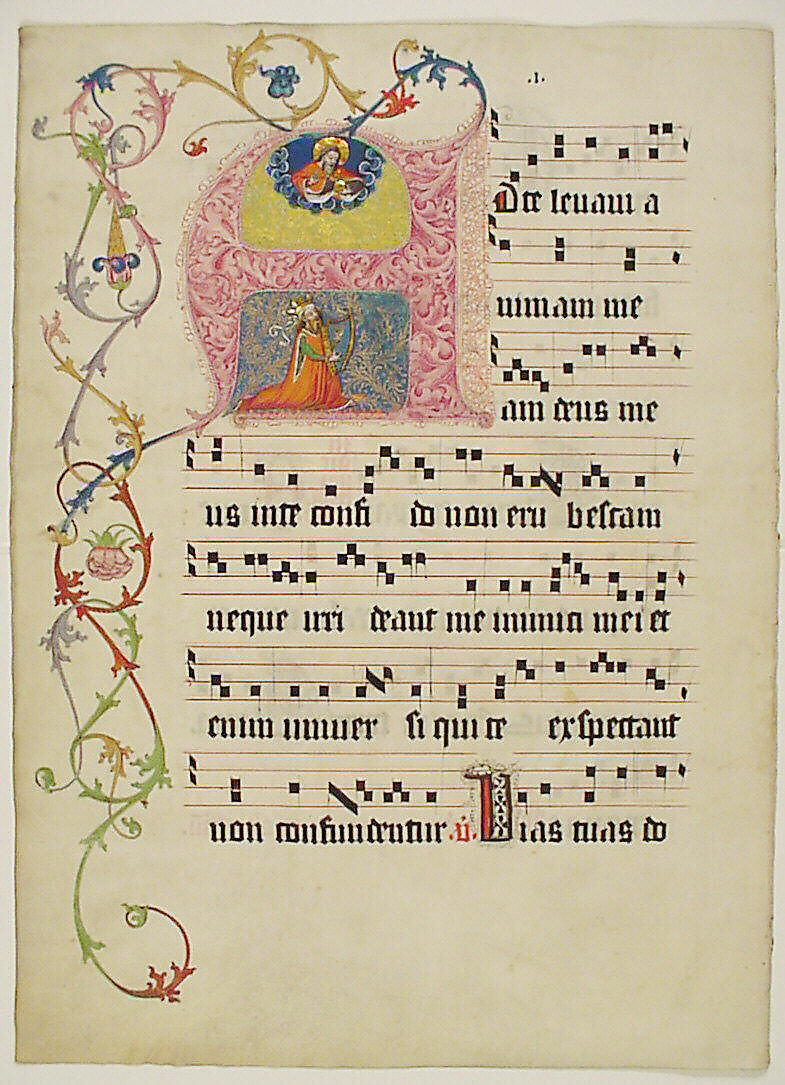 .1.
A Dte levavi a
nimam me
am deus me
us inte confi do non eru bescam
neque irri deant me inimici mei et
enim univer si qui te exspectant
non confundentur .v̄. Vias tuas do